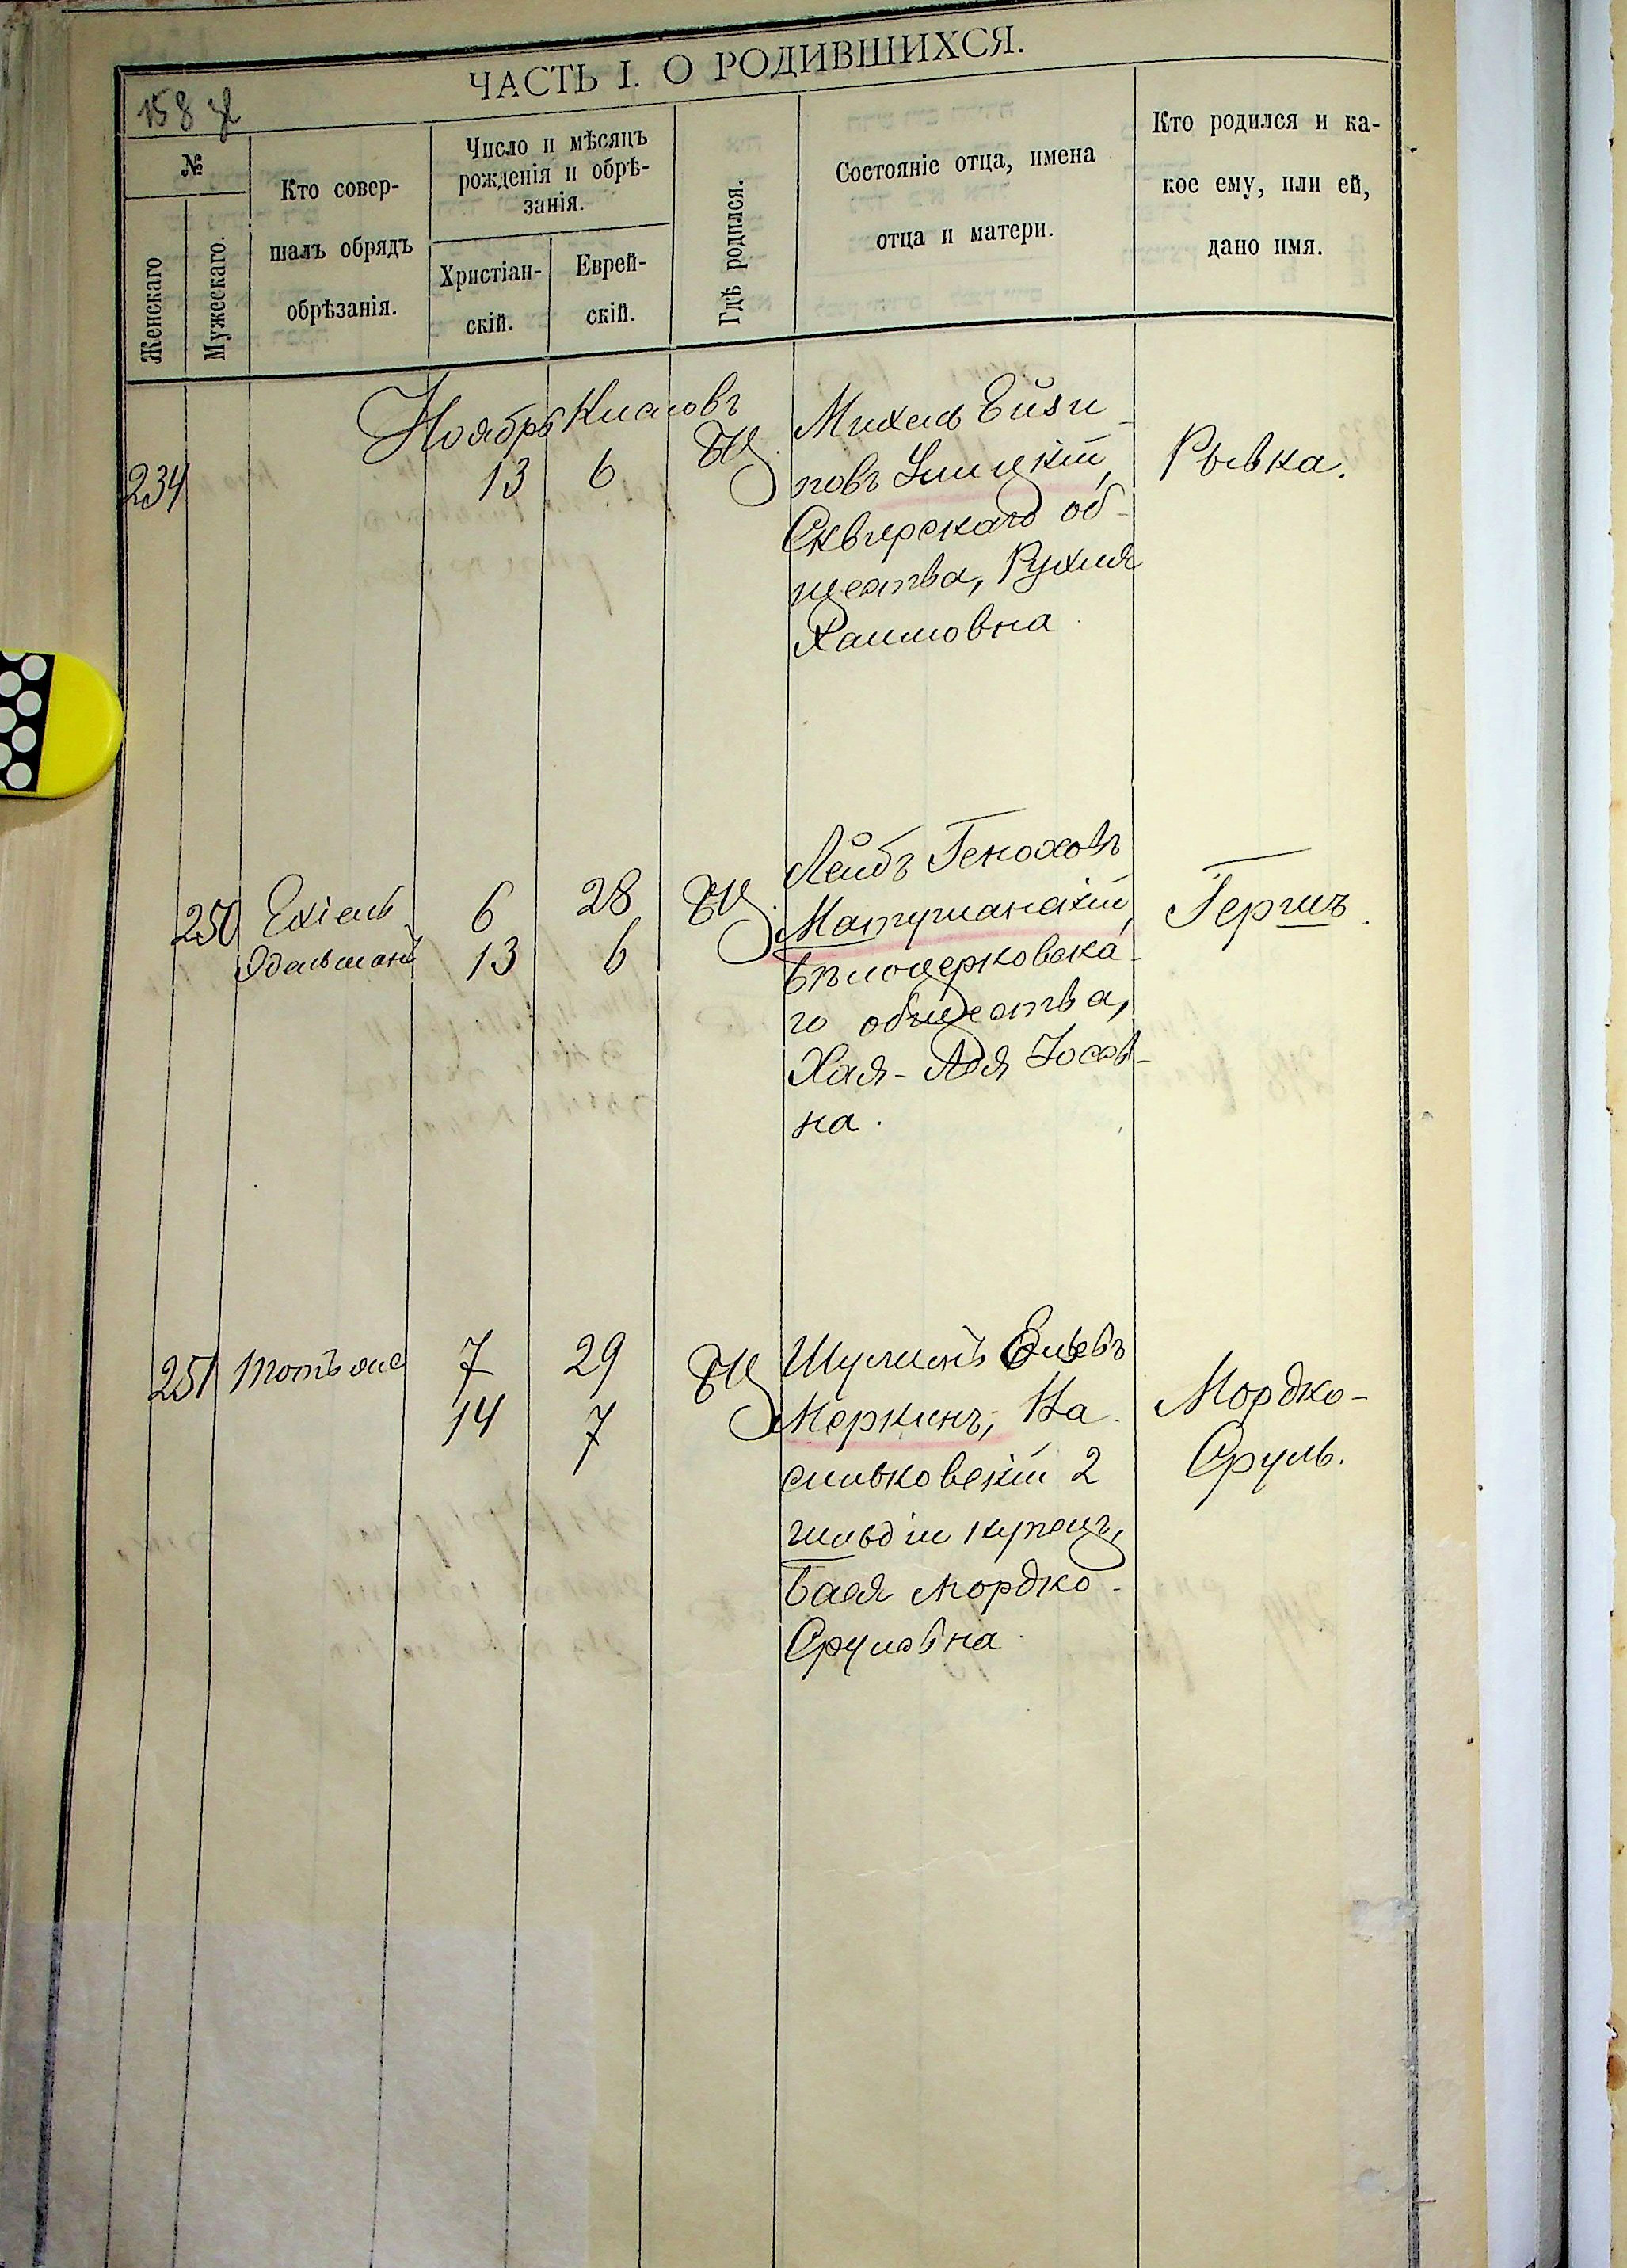 ЧАСТЬ I. О РОДИВШИХСЯ.
158
№
Женскаго
Мужескаго.
Кто совер-
шалъ обрядъ
обрѣзанія.
Число и мѣсяцъ
рожденія и обрѣ-
занія.
Христіан-
скій.
Еврей-
скій.
Гдѣ родился.
Состояніе отца, имена
отца и матери.
Кто родился и ка-
кое ему, или ей,
дано имя.
Ноябрь Кислевъ
234
13 6
БЦ.
Михель Ейзи-
ковъ
Сквирскаго об-
щества, Рухля
Хаимовна.
Рывка.
250 Ехіель
Эдельманъ
6 28
13 6
БЦ.
Лейбъ Геноховъ
Матушанскій,
Бѣлоцерковска-
го общества,
Хая-Адя Іосев-
на.
Гершъ.
251
7 29
14 7
БЦ
Шулимъ Ельевъ
Меркинъ, Ва-
сильковскій 2
гильдіи купецъ,
Бася Мордко-
Срулевна.
Мордко-
Сруль.